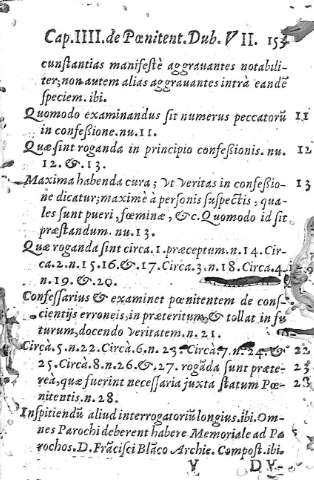 Cap.IIII.de Pœnitent.Dub.VII. 153
cunstantias manifestè aggrauantes notabili-
ter; non autem alias aggrauantes intrà eandẽ
speciem.ibi.
Quomodo examinandus sit numerus peccatorũ 11
in confeßione.nu.11.
Quæ sint roganda in principio confeßionis.nu. 12
12.&.13.
Maxima habenda cura; vt veritas in confeßio- 13
ne dicatur; maximè à personis suspectis, qua-
les sunt pueri, fœminæ, &c. Quomodo id sit
præstandum.nu.13.
Quæ roganda sint circa.1.præceptum.n.14.Cir-
ca.2.n.15.16.&.17.Circa.3.n.18.Circa.4.
n.19.&.20.
Confessarius & examinet pœnitentem de consc-
cientijs erroneis, in præteritum & tollat in fu
turum, docendo veritatem.n.21.
Circà.5.n.22.Circà.6.n.23.Circà.7.n.24.& 22
25.Circà.8.n.26.&.27.rogãda sunt præte- 23
reà, quæ fuerint necessaria juxta statum Pœ-
nitentis.n.28.
Inspitiendũ aliud interrogatoriũ longius.ibi.Om-
nes Parochi deberent habere Memoriale ad Pa
rochos.D.Frãcisci Blãco Archie. Compost.ibi.
V D V-